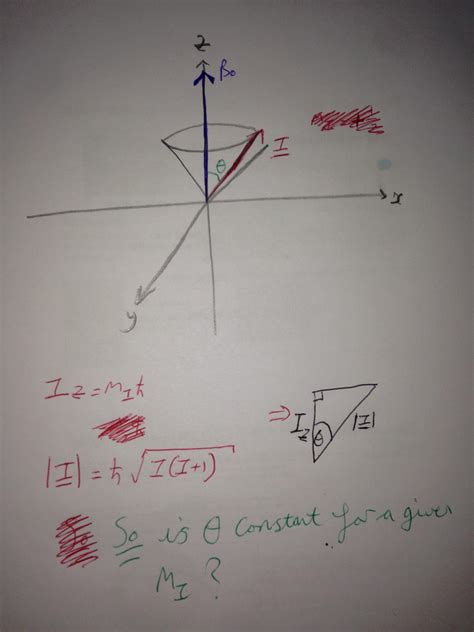 z
B₀
I
θ
x
y
I_z = M_I ħ
|I| = ħ √I(I+1)
⇒ I_z θ |I|
So is θ constant for a given
M_I ?